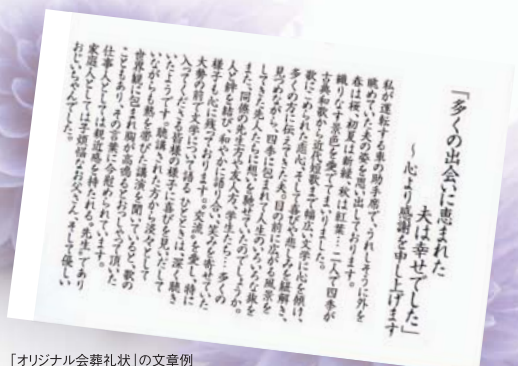 『多くの出会いに恵まれた
夫は幸せでした』
～心より感謝を申し上げます
私が運転する車の助手席で、うれしそうに外を
眺めていた夫の姿を思い出しております。
春は桜、初夏は新緑、秋は紅葉…二人で四季が
織りなす景色を愛でてまいりました。
古典和歌から近代短歌まで幅広い文学に心を傾け、
歌にこめられた恋心、そして喜びや悲しみを紐解き、
多くの方に伝えてきた夫。目の前に広がる風景を
見つめながら、四季に包まれて人生のいろいろな坂を
してきた先人たちに想いを馳せていたのでしょうか。
また、同僚の先生方や友人方、学生たち…多くの
人と絆を結び、和やかに語り合い、笑みを寄せていた
様子も心に残っております。交流を愛し、特に
大勢の前で文学について語るひとときは、深く聴き
入ってくださる皆様の様子に喜びを見いだして
いたようです。聴講された方から「淡々として
いながらも熱を帯びた講演を聞いていると、歌の
世界観に包まれ胸が高鳴る」とおっしゃって頂いた
こともあり、その言葉に合点がいきました。
仕事人としては親近感を持たれる"先生"であり
家庭人としては子煩悩なお父さん、そして優しい
おじいちゃんでした。
「オリジナル会葬礼状」の文章例